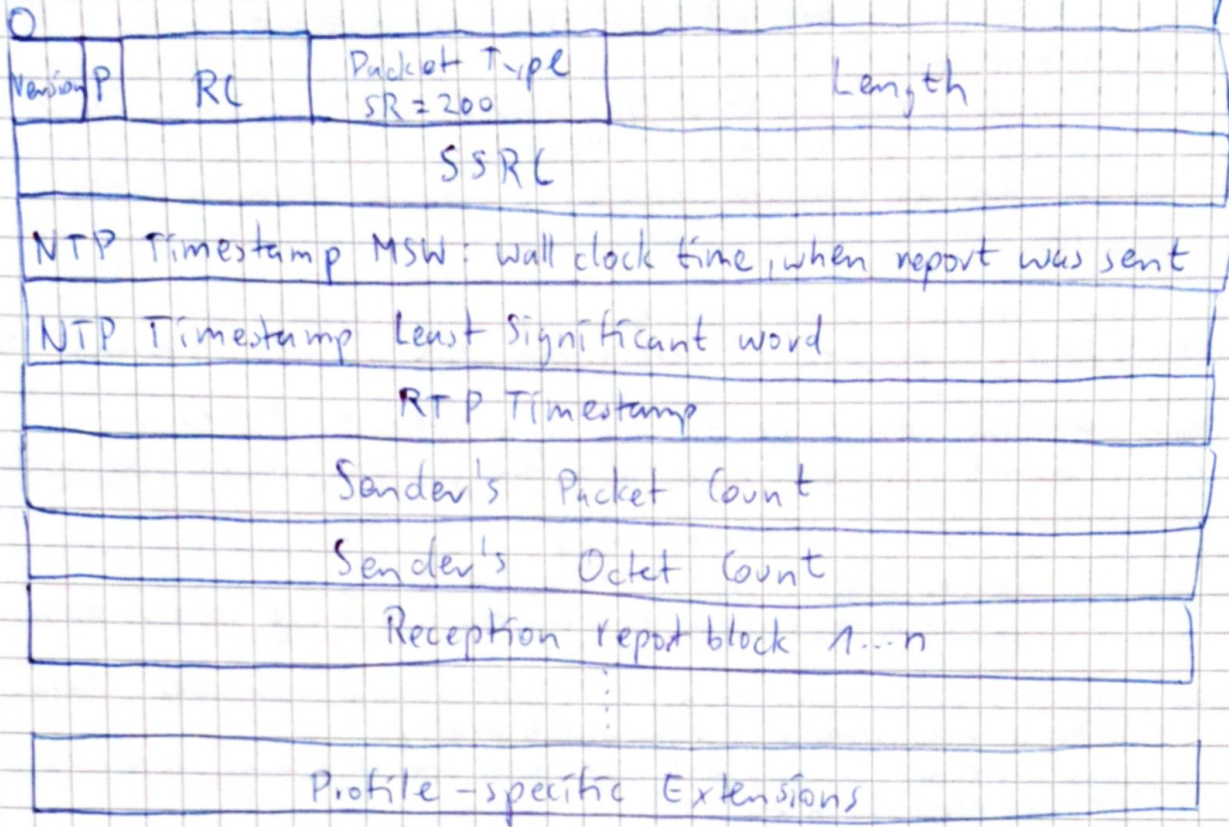 0
Version P RC Packet Type Length
SR = 200
SSRC
NTP Timestamp MSW: wall clock time, when report was sent
NTP Timestamp Least Significant word
RTP Timestamp
Sender's Packet Count
Sender's Octet Count
Reception report block 1...n
Profile-specific Extensions